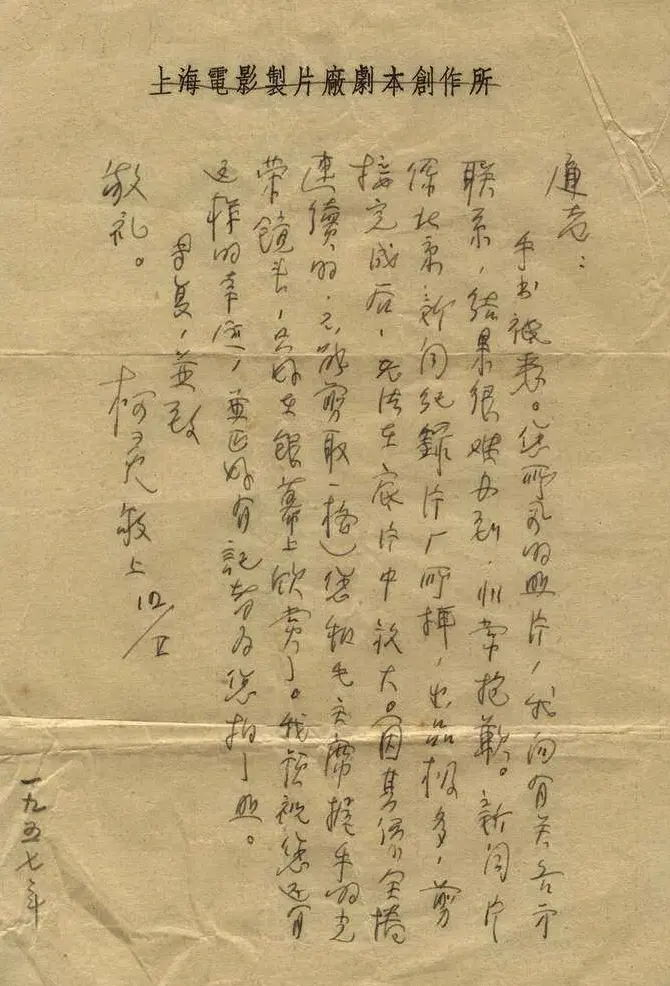 上海電影製片廠劇本創作所
老：
手书敬悉。您所的照片，我向有关各方
联系，结果很难办到，非常抱歉。新闻片
係北京新闻纪錄片厂所摄，出品极多，剪
接完成后，无法在底片中放大。（因其係
連續的，不能剪取一格）您和毛主席握手的光
荣镜头，只好在銀幕上欣賞了。我预祝您还有
这样的幸运，並正好有記者为您拍了照。
复，並致
敬礼。
柯灵敬上 12/V
一九五七年